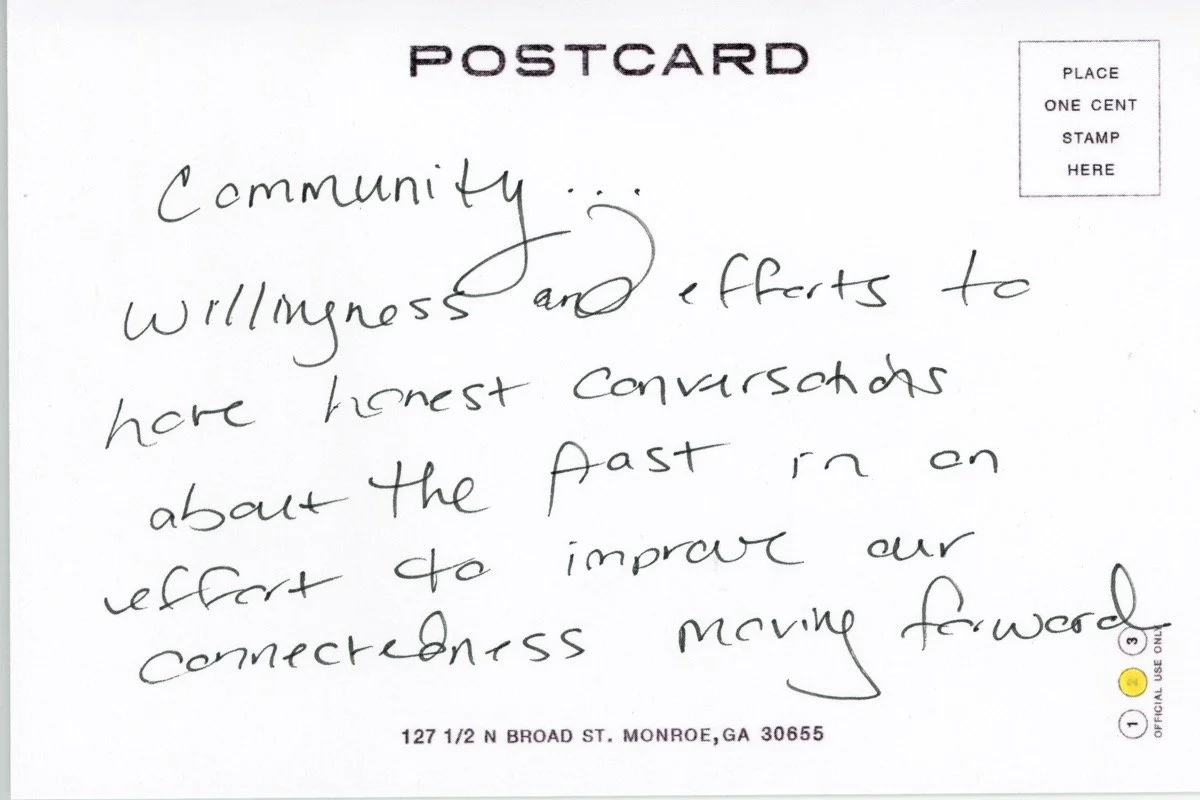 POSTCARD
PLACE
ONE CENT
STAMP
HERE
Community...
Willingness and efforts to
have honest conversations
about the past in an
effort to improve our
connectedness moving forward
127 1/2 N BROAD ST. MONROE,GA 30655
1 2 3
OFFICIAL USE ONLY